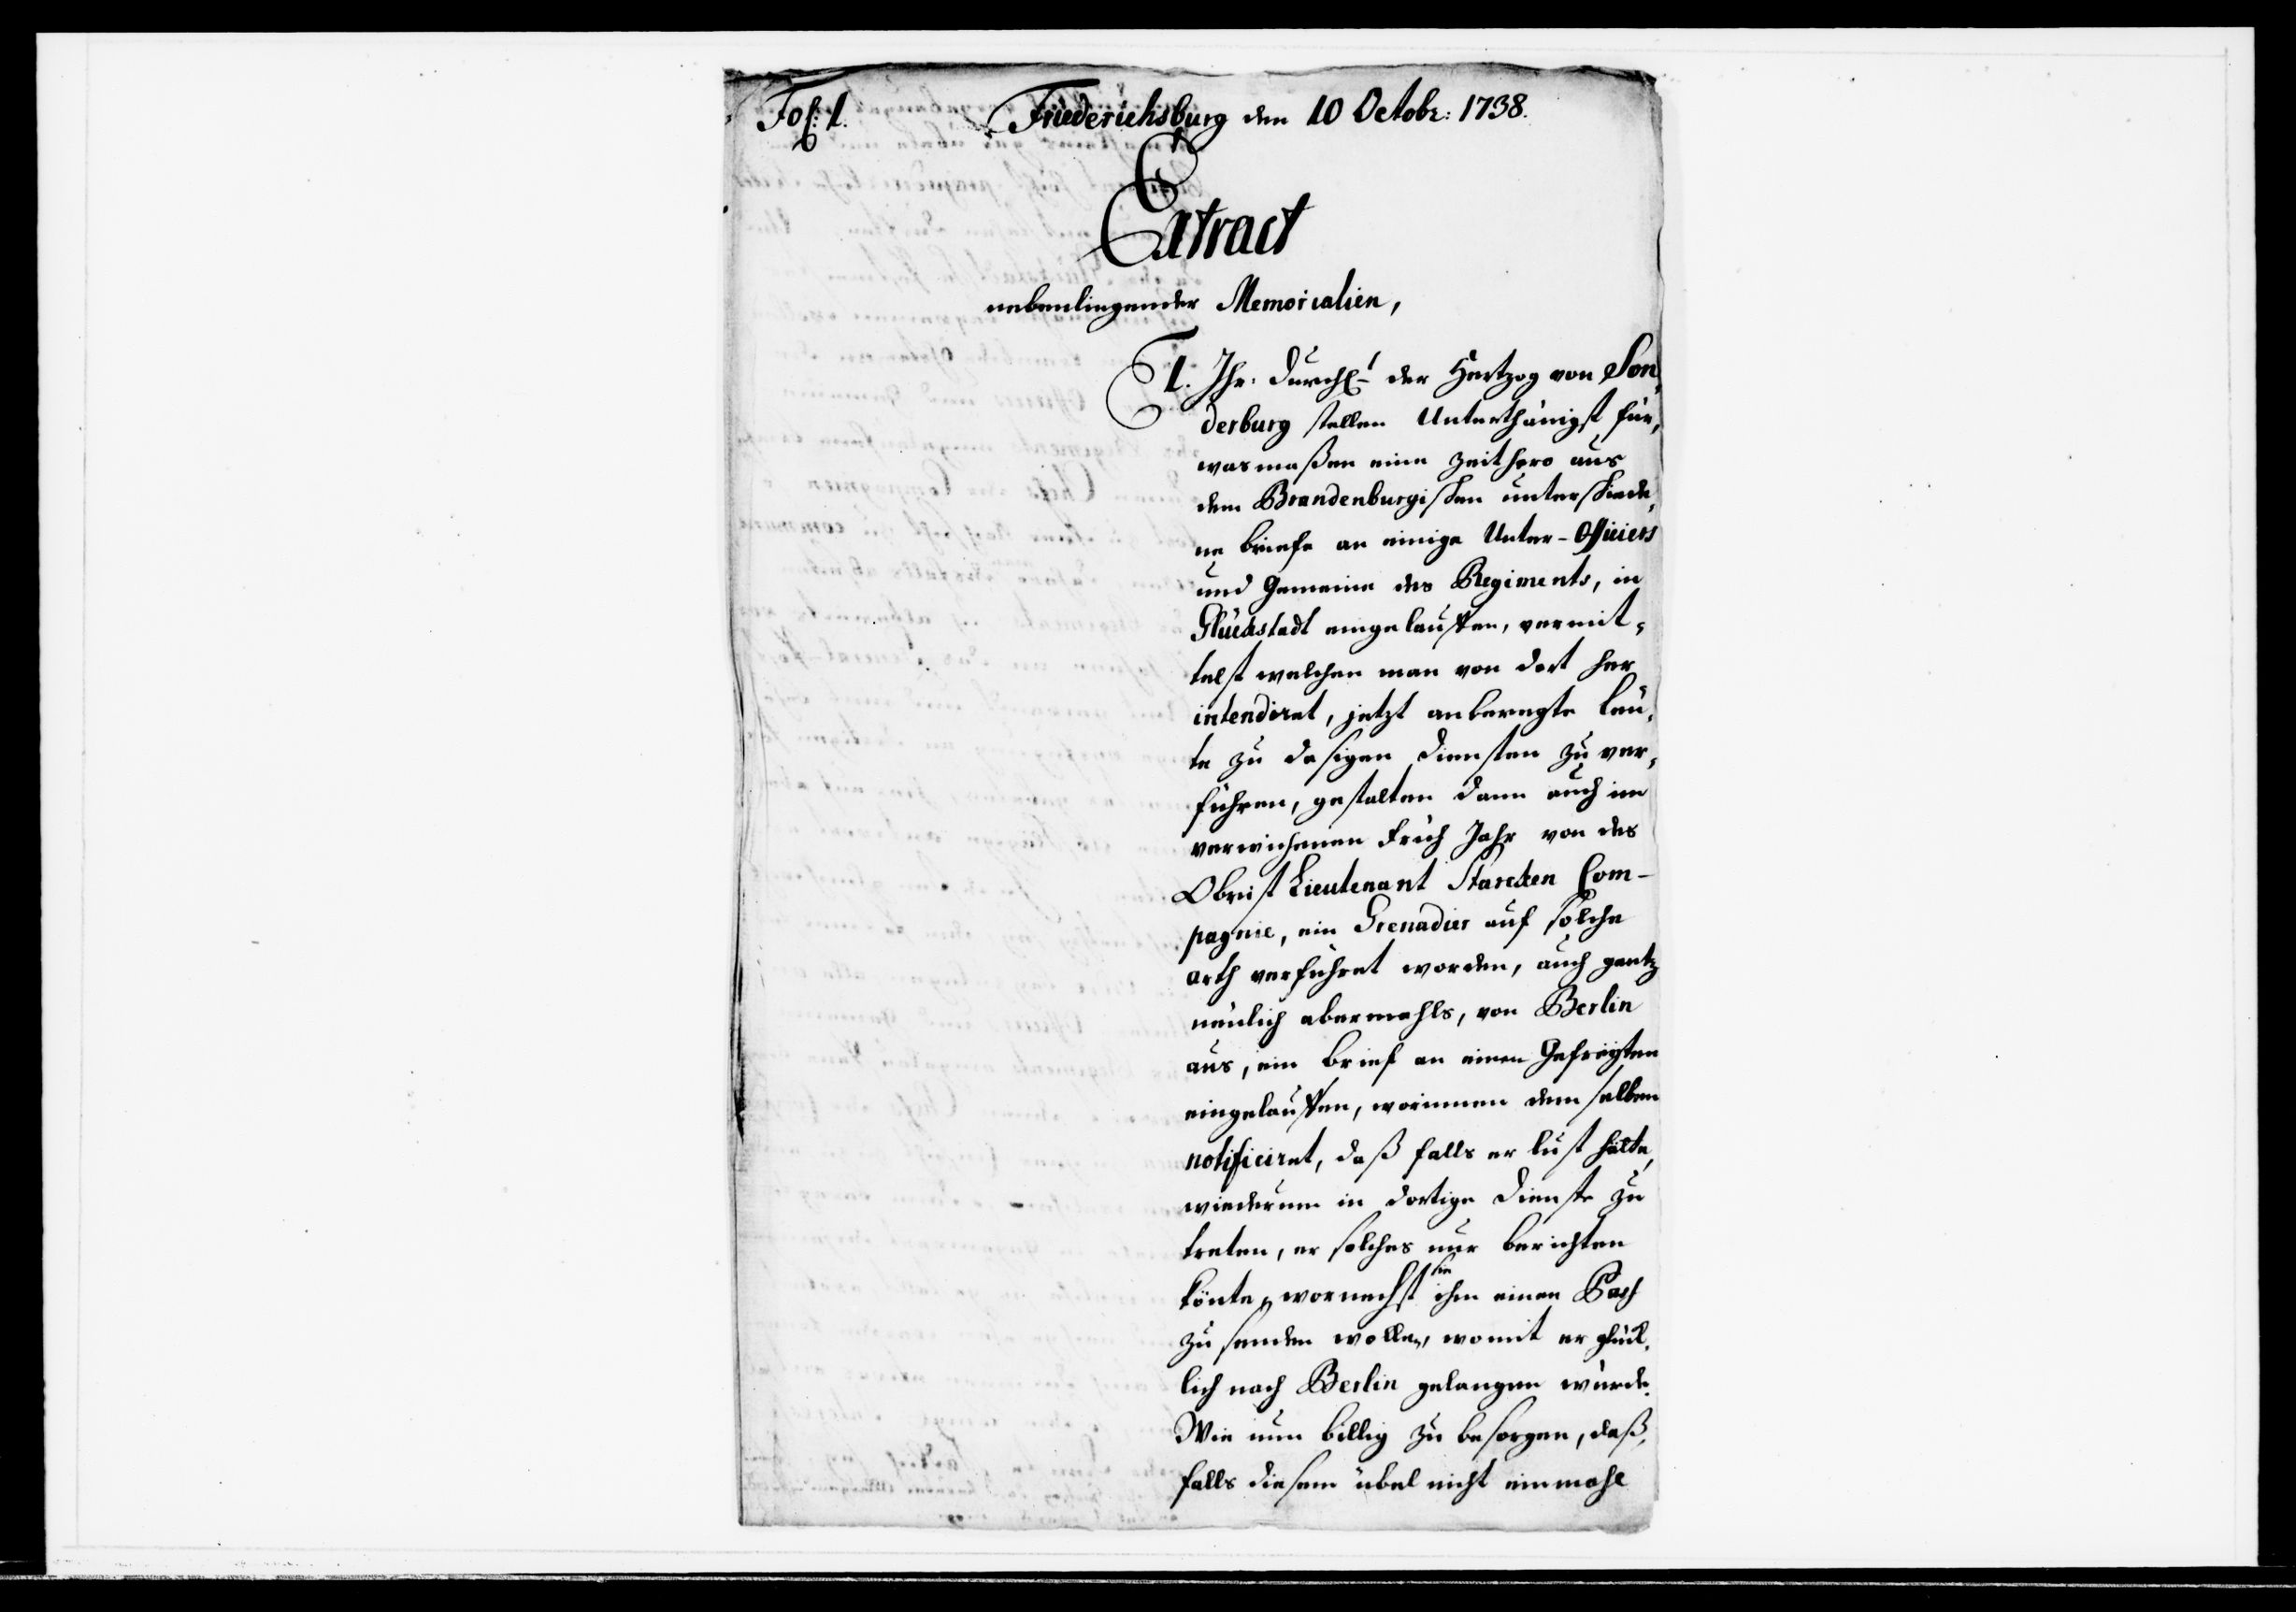 Fol: 1. Friederichsburg den 10 Octobr: 1738.
Extract
nebenliegender Memorialien,
1. Ihr. Durchl. der Hertzog von Son-
derburg stellen Unterthänigst für,
wasmaßen eine zeithero aus
dem Brandenburgischen unterschiede-
ne briefe an einige Unter-Officiers
und Gemeine des Regiments, in
Glückstadt eingelauffen, vermit-
telst welchen man von dort her
intendiret, jetzt anberegte leu-
te zu dasigen Diensten zu ver-
führen, gestalten dann auch im
verwichenen Früh Jahr von des
Obrist Lieutenant Starcken Com-
pagnie, ein Grenadier auf solche
arth verführet worden, auch gantz
neulich abermahls, von Berlin
aus, ein brief an einen Gefreyten
eingelauffen, worinnen demselben
notificiret, daß falls er lust hätte,
wiederum in dortige Dienste zu
treten, er solches nur berichten
könte, wornechst sie ihm einen Pass
zu senden wollen, womit er glück-
lich nach Berlin gelangen würde.
Wie nun billig zu besorgen, daß,
falls diesem übel nicht einmahl